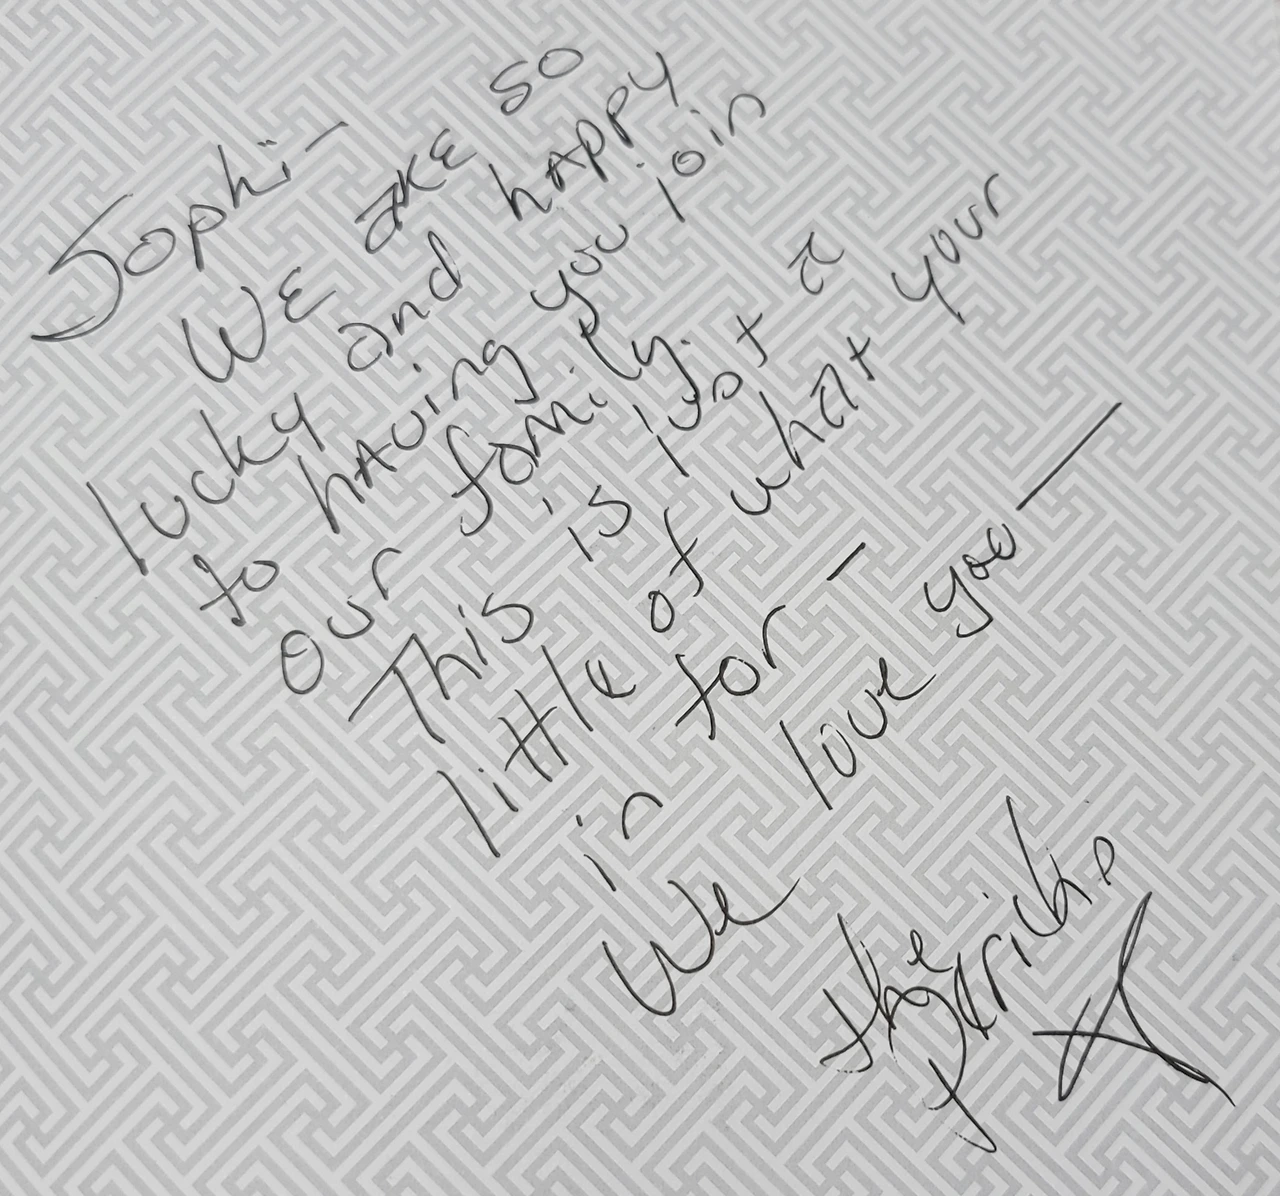 Sophi-
WE ARE so
lucky and happy
to having you join
our family.
This is just a
little of what your
in for -
We love you -
the